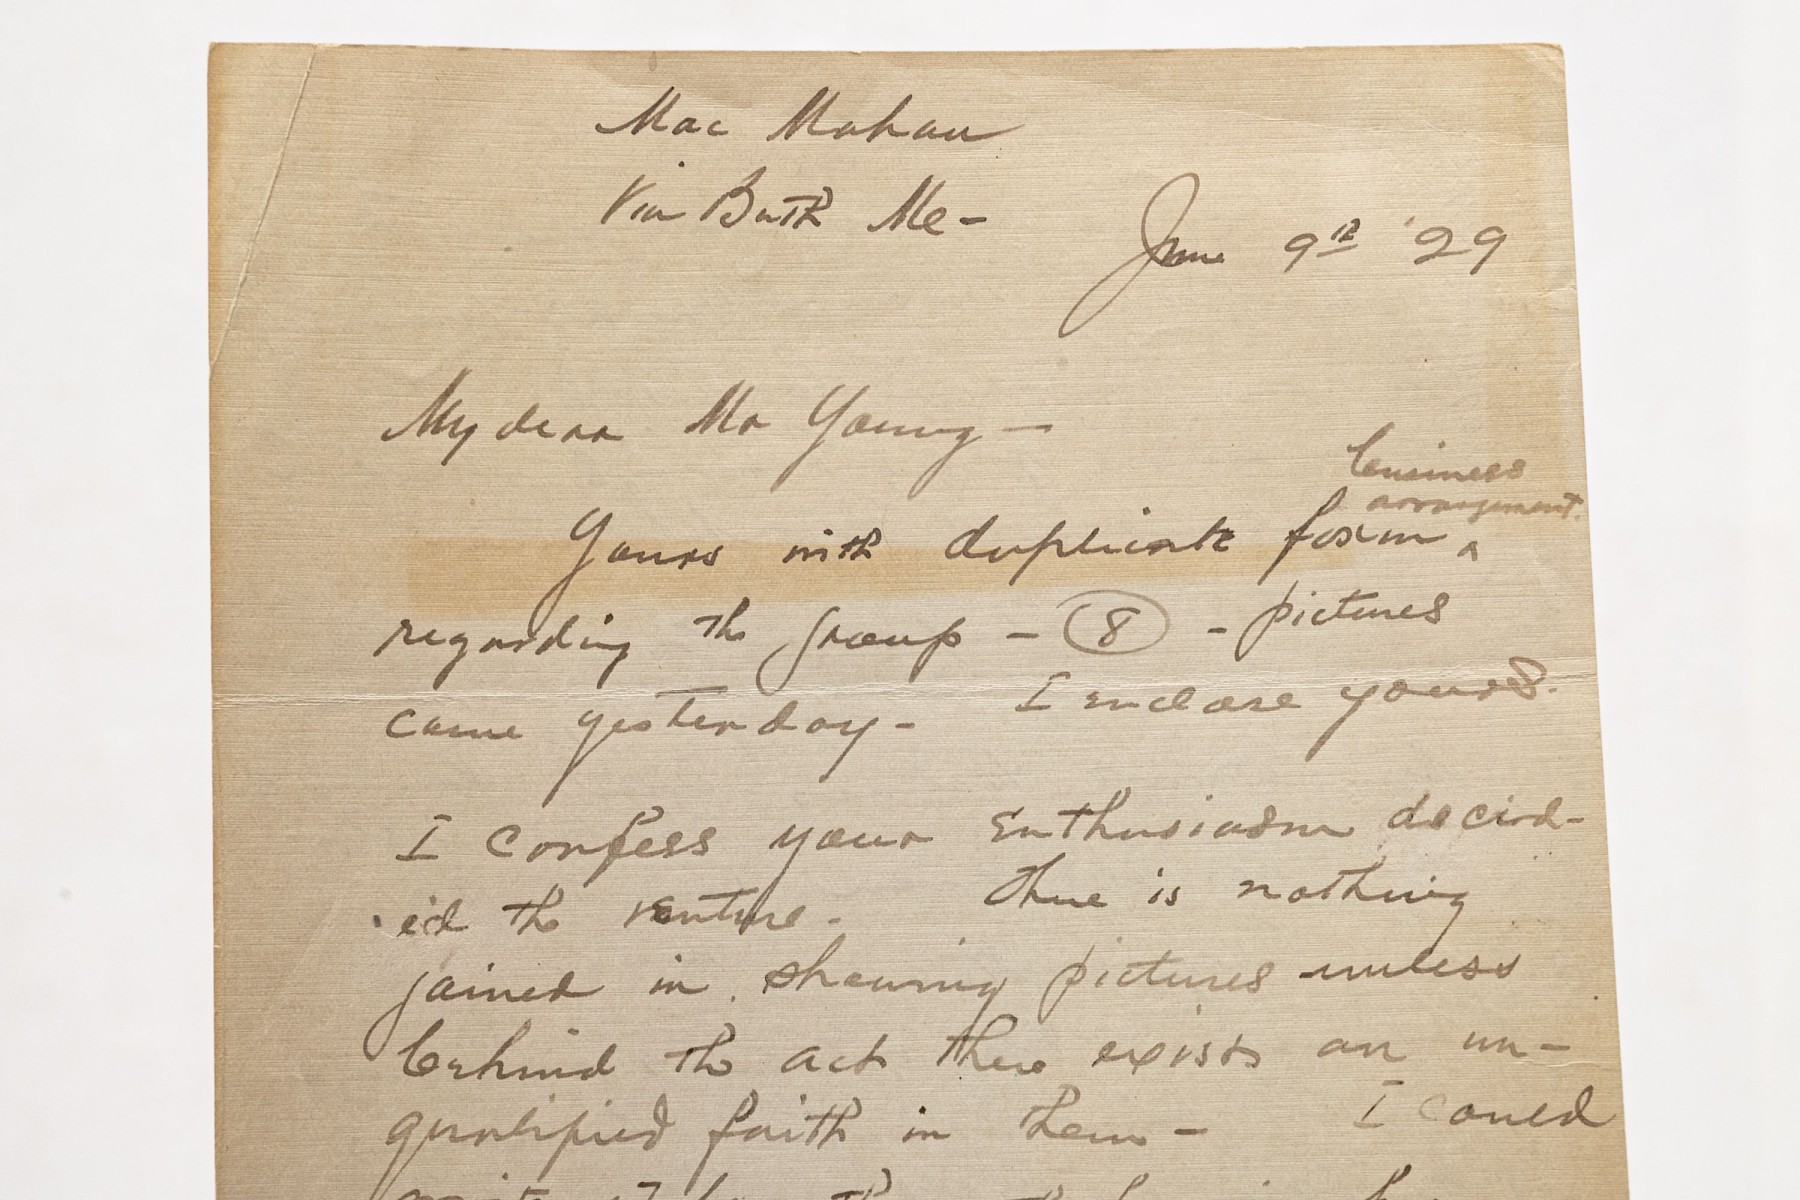 Mac Mahan
Via Bath Me-
June 9th '29
My dear Mr Young-
business
arrangement.
Yours with duplicate form ^
regarding the group - 8 - pictures
came yesterday- I enclose yours.
I confess your enthusiasm decid-
ed the venture. There is nothing
gained in shewing pictures unless
behind the act there exists an un-
qualified faith in them- I could